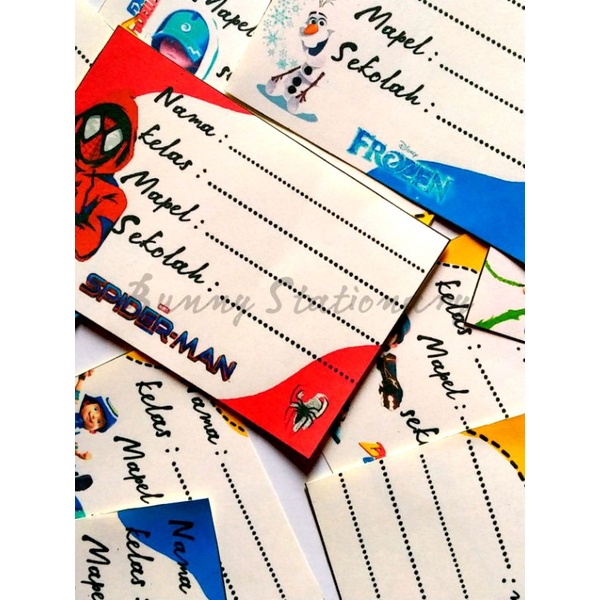 Mapel :
Sekolah :
Disney
FROZEN
Nama :
Kelas :
Mapel :
Sekolah :
SPIDER-MAN
Bunny Stationary
Kelas :
Mapel :
Nama :
Kelas :
Mapel
Nama
Kelas
Mapel